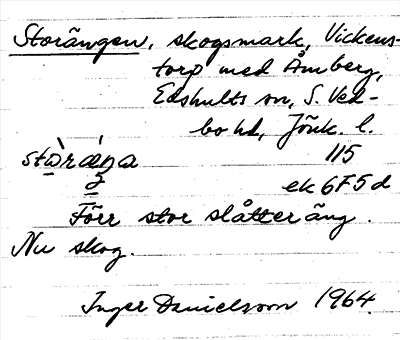 Storängen, skogsmark, Vickens-
torp med Åmberg,
Edshults sn, S. Ved-
bo hd, Jönk. l.
115
ek6F5d
Förr stor slåtteräng.
Nu skog.
Inger Danielsson 1964.